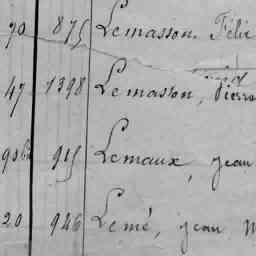 90 875 Lemasson, Féli
47 1398 Lemasson, Pierre
90bis 915 Lemaux, jean
20 946 Lemé, jean M